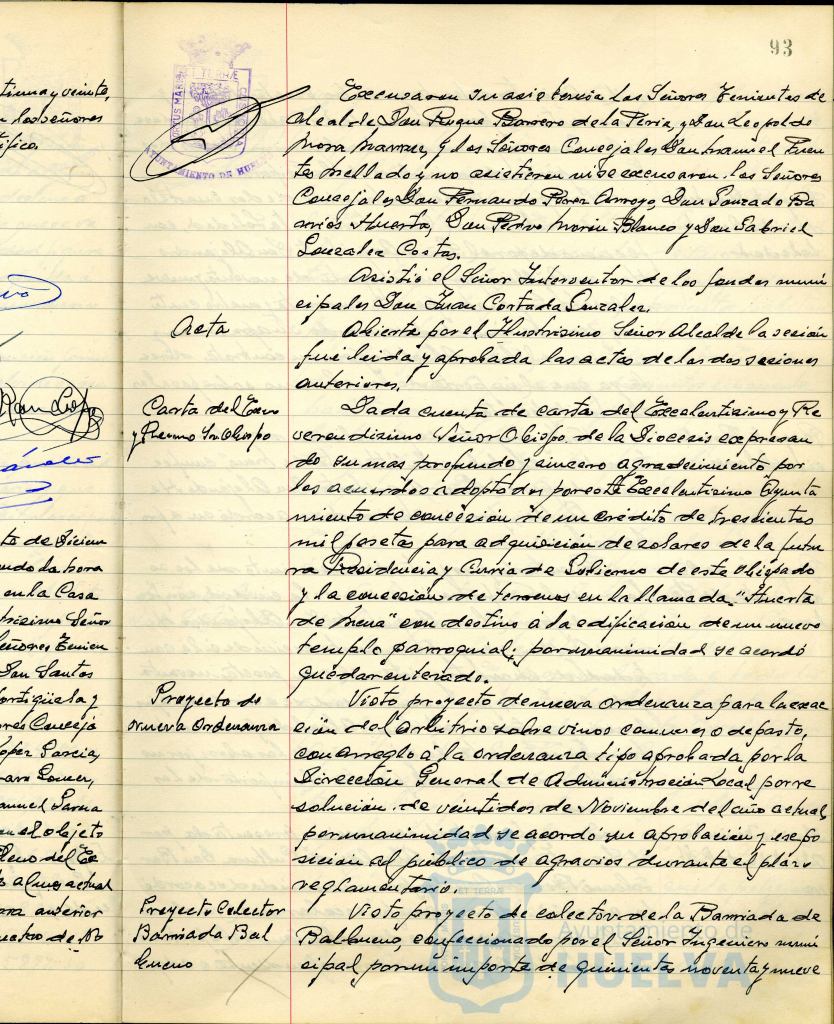 93
tinna y veinte,
los señores
tifico.
Excusaron su asistencia los Señores Tenientes de
Alcalde Don Roque Barrero de la Peña, y Don Leopoldo
Mora Narvaez, y los Señores Concejales Don Manuel Fuen
tes Mellado y no asistieron ni se excusaron los Señores
Concejales Don Fernando Perez Arroyo, Don Gonzado Ba
rrios Huerta, Don Pedro Morón Blanco y Don Gabriel
Gonzalez Costas.
Asistió el Señor Interventor de los fondos muni
cipales Don Juan Cortada Gonzalez.
Acta
Abierta por el Ilustrisimo Señor Alcalde la sesión
fué leida y aprobada las actas de las dos sesiones
anteriores.
Carta del Excmo
y Rvermo Sr. Obispo
Dada cuenta de carta del Excelentisimo y Re
verendisimo Señor Obispo de la Diocesis expresan
do su mas profundo y sincero agradecimiento por
los acuerdos adoptados por este Excelentisimo Ayunta
miento de concesión de un crédito de trescientas
mil pesetas para adquisición de solares de la futu
ra Residencia y Curia de Gobierno de este Obispado
y la concesión de terrenos en la llamada "Huerta
de Mena" con destino á la edificación de un nuevo
templo parroquial; por unanimidad se acordó
quedar enterado.
Proyecto de
nueva Ordenanza
Visto proyecto de nueva ordenanza para la exac
ción del arbitrio sobre vinos comunes o de pasto,
con arreglo á la ordenanza tipo aprobada por la
Dirección General de Administración Local por re
solución de veintidos de Noviembre del año actual,
por unanimidad se acordó su aprobación y expo
sición al público de agravios durante el plazo
reglamentario.
Proyecto Colector
Barriada Bal
bueno
Visto proyecto de colector de la Barriada de
Balbueno, confeccionado por el Señor Ingeniero muni
cipal, por un importe de quinientas noventa y nueve
to de Diciem
ndo la hora
en la Casa
trisimo Señor
eñores Tenien
Don Santos
ortigüela y
res Conceja
opez Garcia,
anuel Garma
en el objeto
leno del Ex
actual
ora anterior
AYUNTAMIENTO DE HUE
Ayuntamiento de
HUELVA